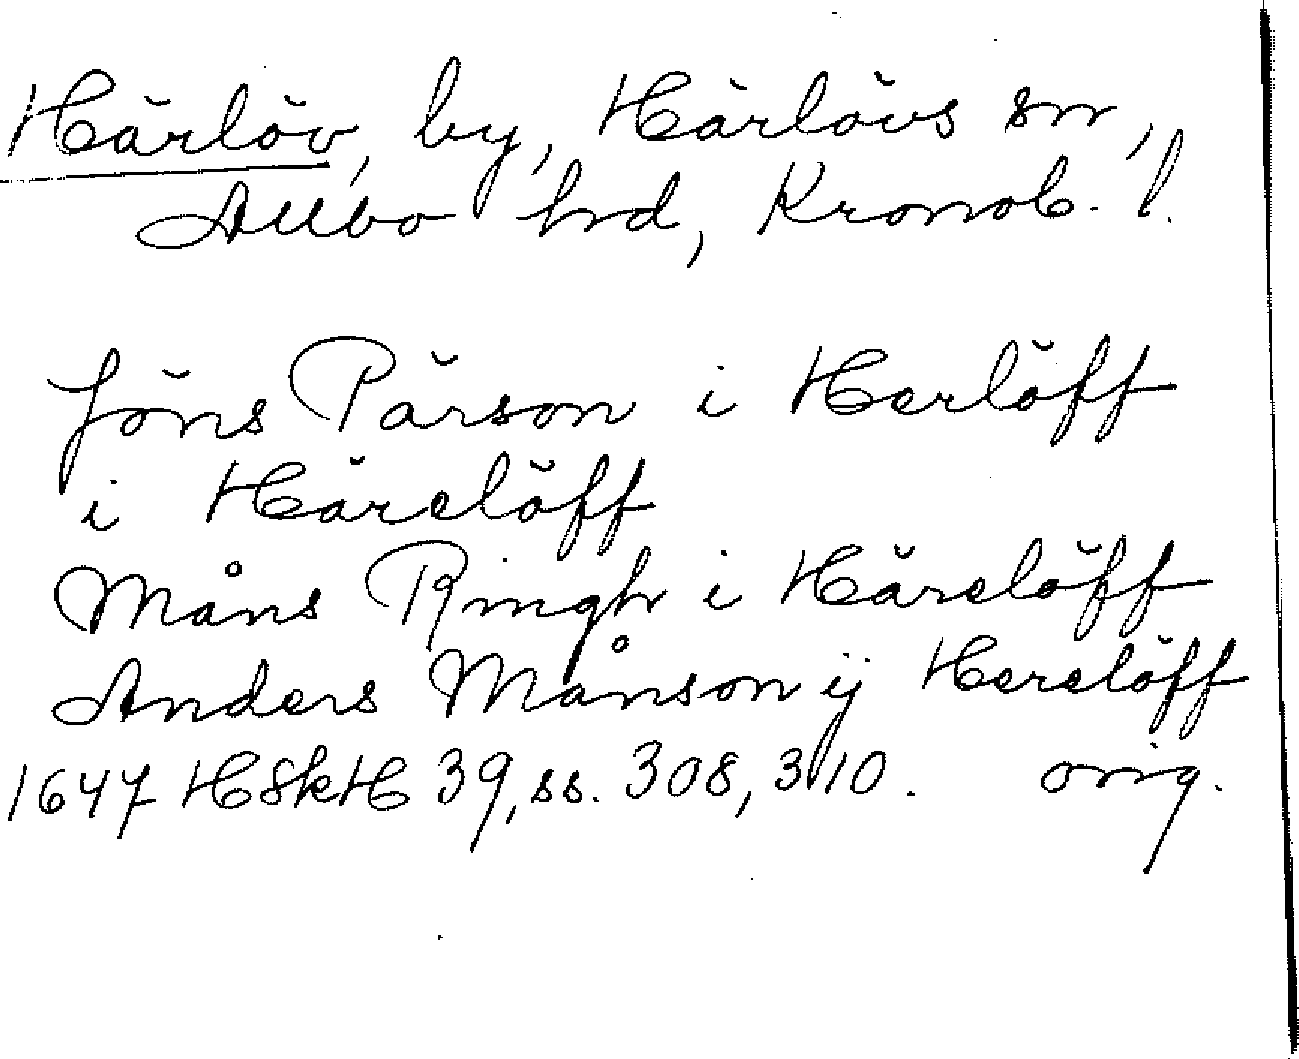 Härlöv, by, Härlövs sn,
Allbo hrd, Kronob. l.
Jöns Pärson i Herlöff
i Häreløff
Måns Ringh i Härelöff
Anders Månson ij Herelöff
1647 HSkH 39, ss. 308, 310. orig.